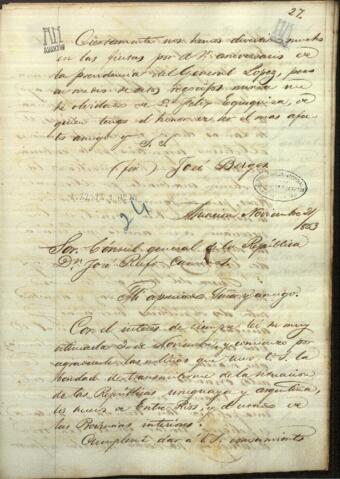 27.
Ciertamente nos hemos divertido mucho
en las fiestas por el aniversario de
la presidencia del General Lopez, pero
en medio de estos regocijos nunca me
he olvidado de Dn Felix Eguzquiza, de
quien tengo el honor de ser el mas afec
to amigo y S. S.
(fdo) José Berges
24
Asuncion Noviembre 21/
863
Sor. Consul general de la República
Dn José Rufo Caminos.
Mi apreciado Señor y amigo.
Con el interes de siempre leí su muy
estimada 2 de Noviembre, y comienzo por
agradecerle las noticias que tuvo V.S. la
bondad de transmitirme de la situacion
de las Repúblicas uruguaya y argentina,
de Entre Rios, y de
las Provincias interiores.
Cumpleme dar á V.S. conocimiento